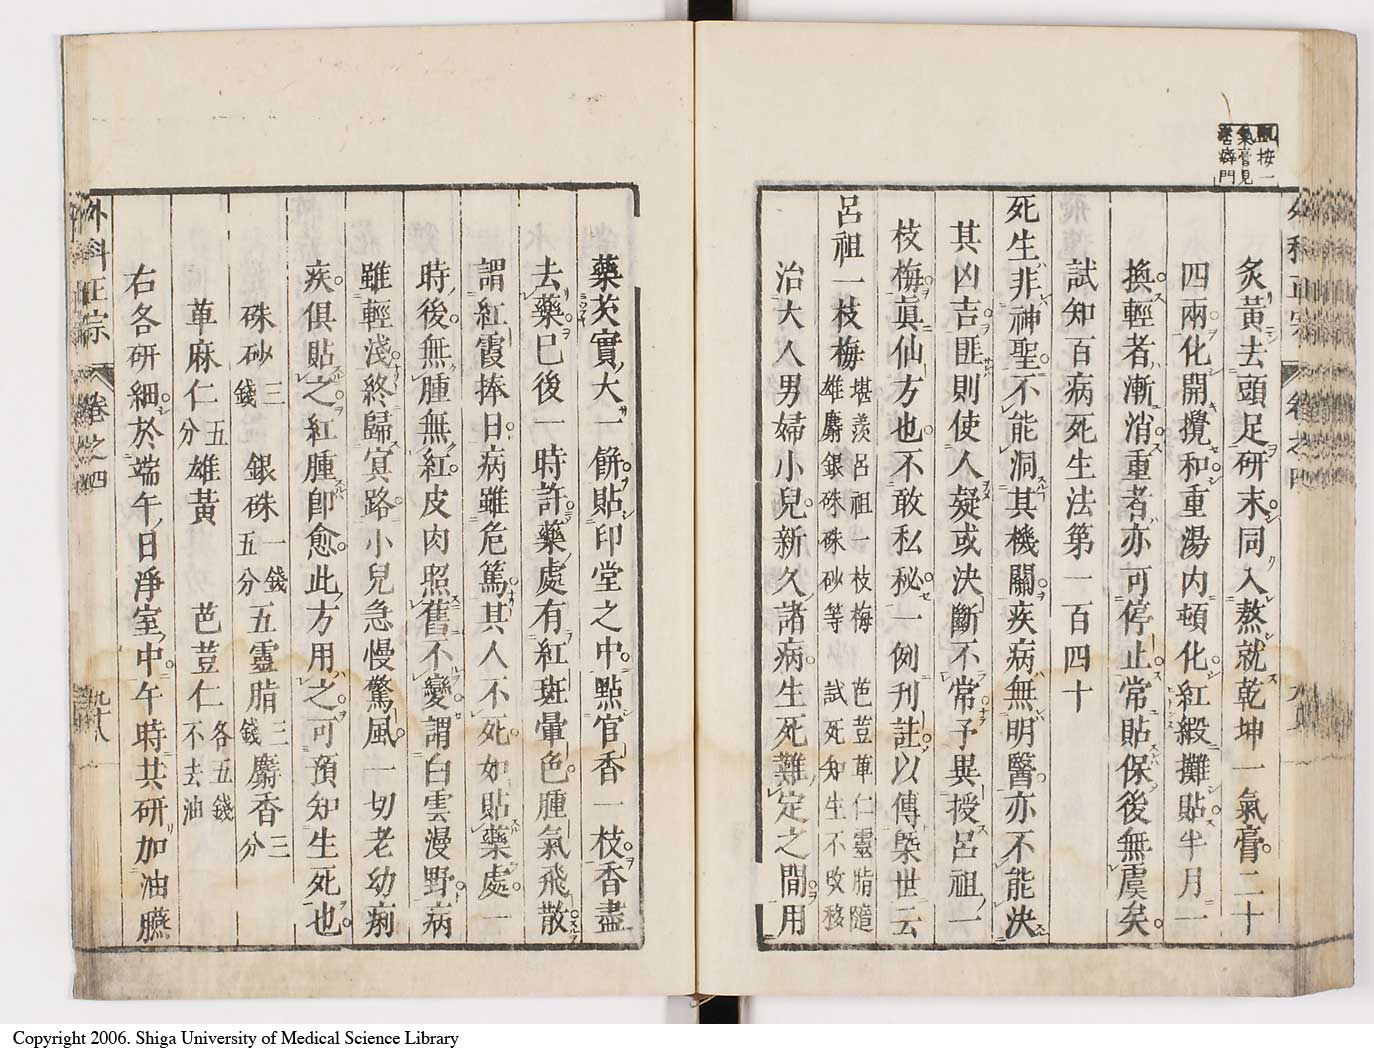 按一
氣膏見
門
炙黃去頭足研末同入熬就乾坤一氣膏二十
四兩化開攪和重湯内頓化紅緞攤貼半月一
換輕者漸消重者亦可停止常貼保後無虞矣
試知百病死生法第一百四十
死生非神聖不能洞其機關疾病無明醫亦不能決
其凶吉匪則使人疑或決斷不常予異授呂祖一
枝梅眞仙方也不敢私秘一例刋註以傳槩世云
呂祖一枝梅
堪羨呂祖一枝梅 芭荳萆仁靈脂隨
雄麝銀硃硃砂等 試死知生不改移
治大人男婦小兒新久諸病生死難定之間用
藥芡實大一餅貼印堂之中點官香一枝香盡
去藥巳後一時許藥處有紅斑暈色腫氣飛散
謂紅霞捧日病雖危篤其人不死如貼藥處一
時後無腫無紅皮肉照舊不變謂白雲漫野病
雖輕淺終歸冥路小兒急慢驚風一切老幼痢
疾俱貼之紅腫卽愈此方用之可預知生死也
硃砂三錢 銀硃一錢五分 五靈脂三錢 麝香三分
萆麻仁五分 雄黃 芭荳仁各五錢不去油
右各研細於端午日淨室中午時共研加油臙
外科正宗 卷之四 九十八